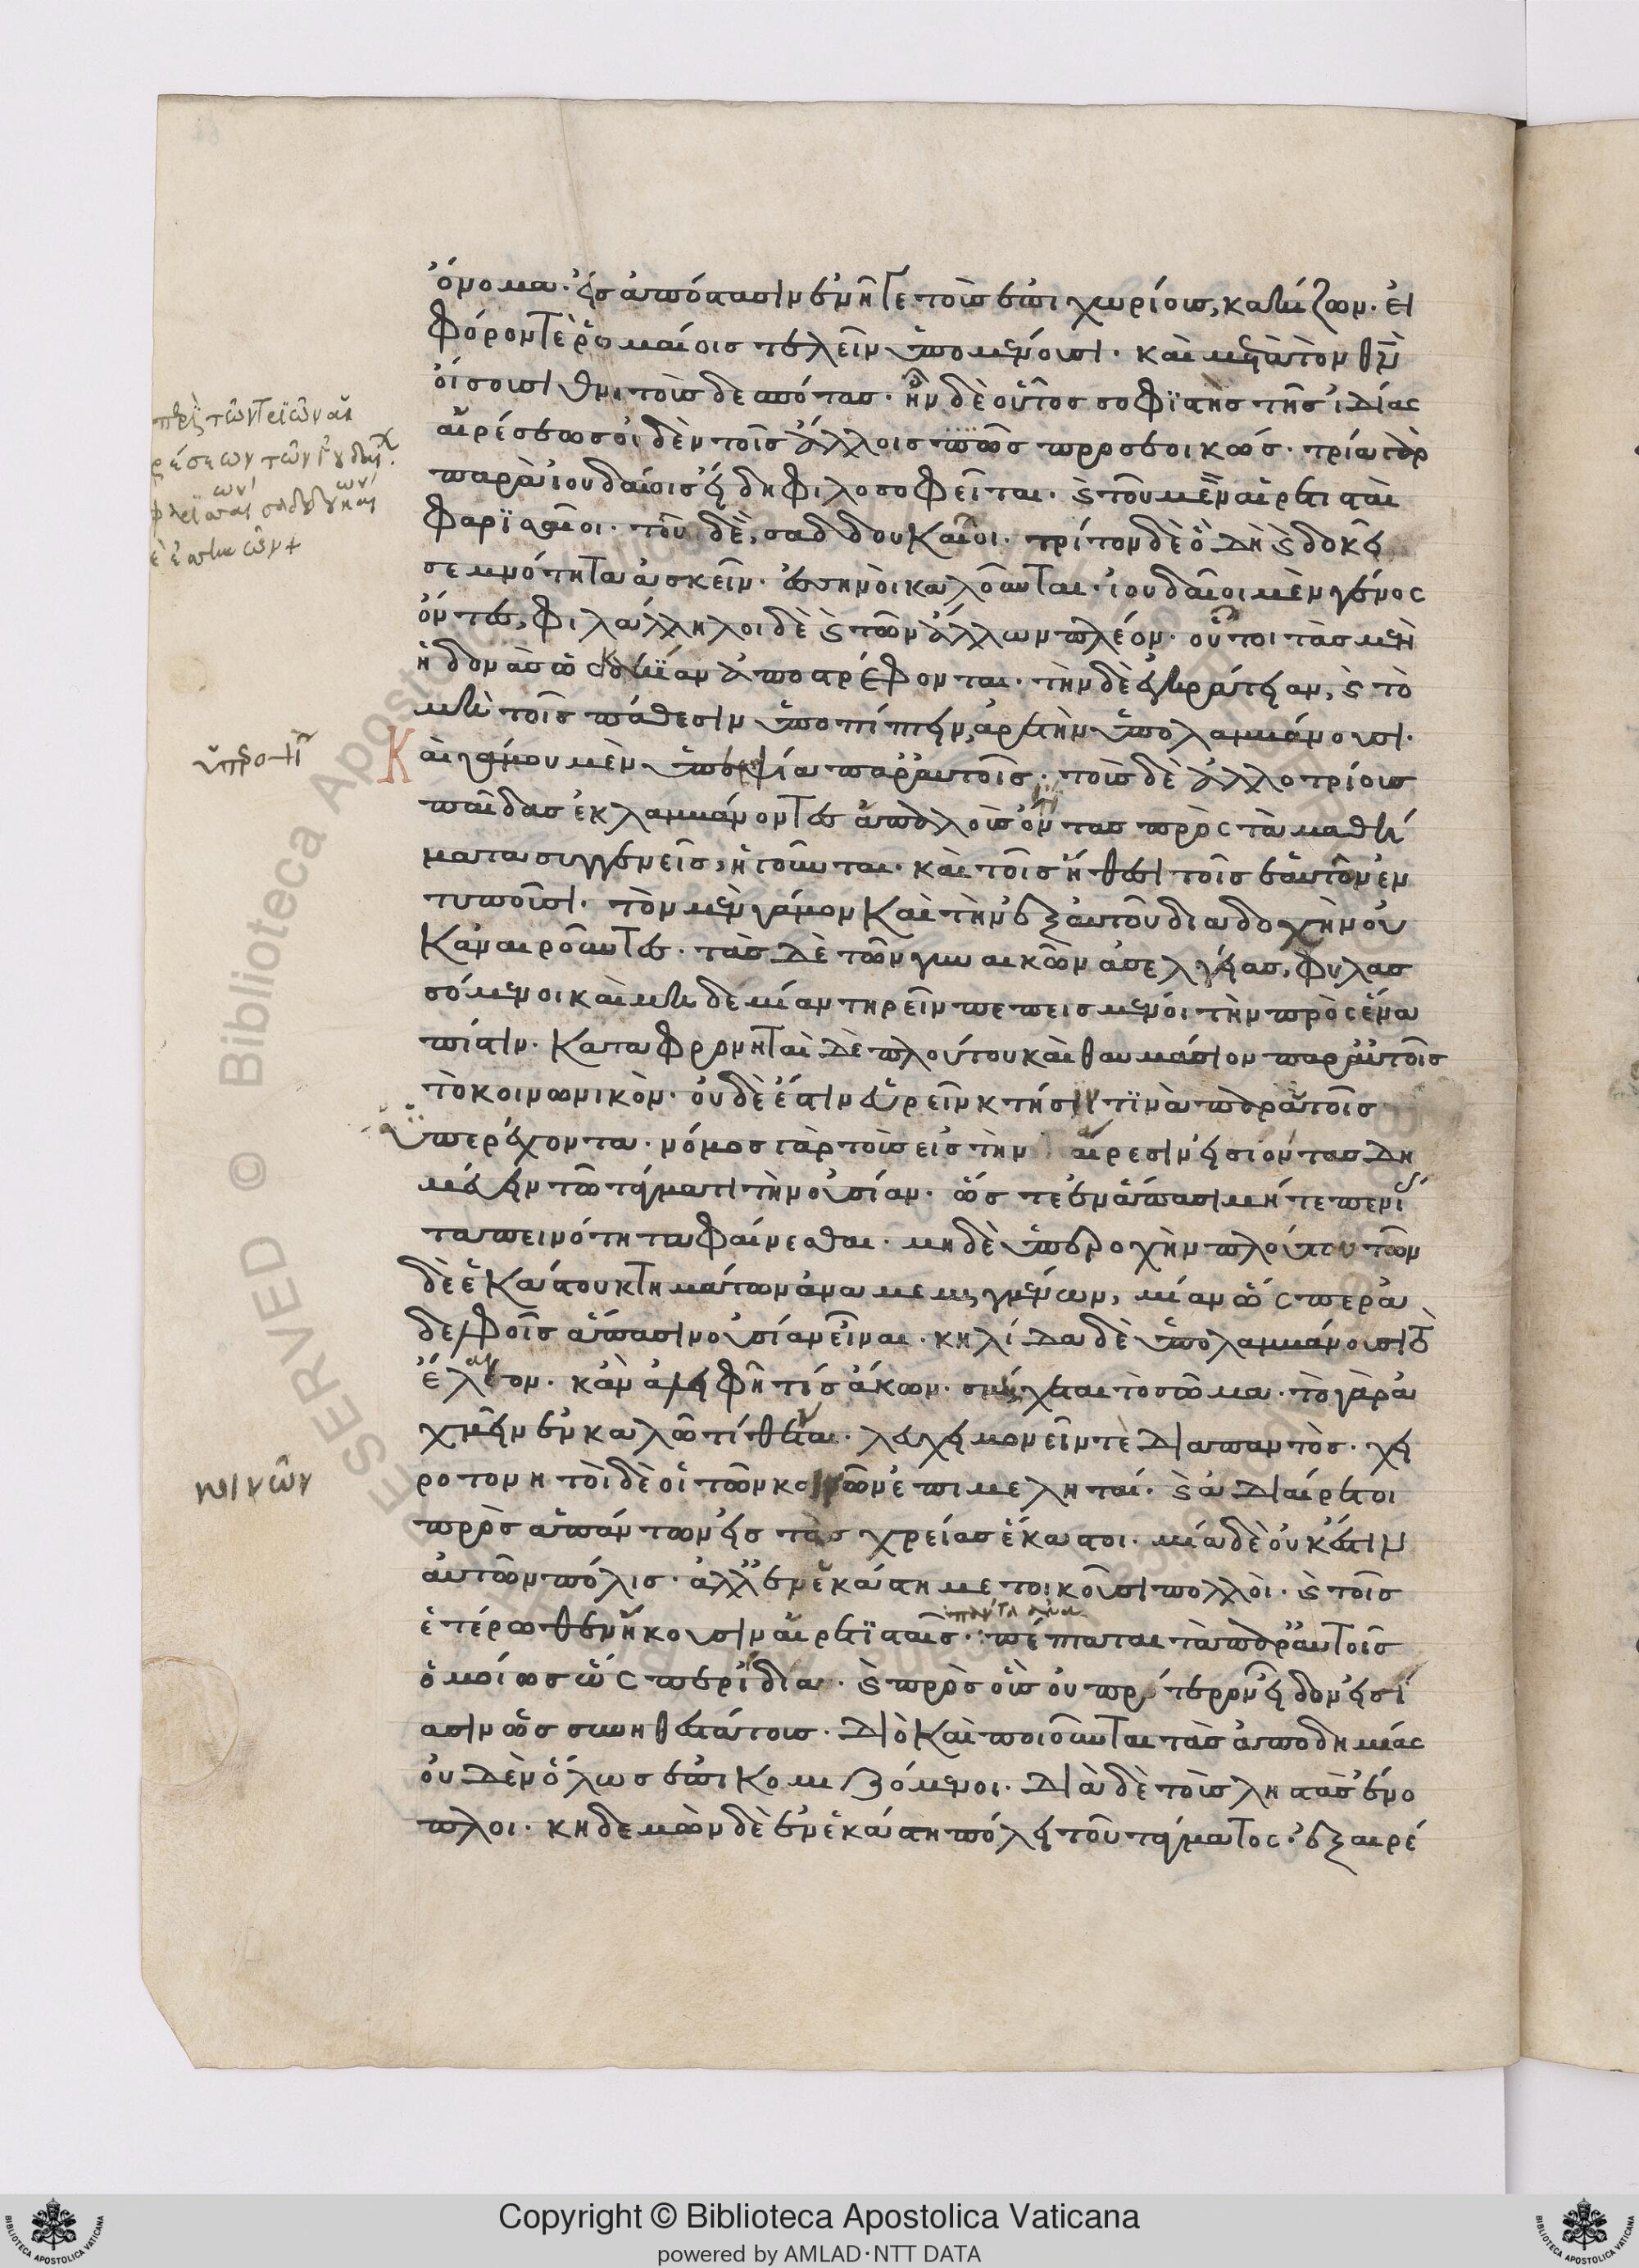 ὄνομα· εἰς ἀπόστασιν ἐνῆγε τοὺς ἐπιχωρίους, κακίζων· εἰ
φόρον τὲ ῥωμαίοις τελεῖν ὑπομένουσι· καὶ μετὰ τὸν θν̄
οἴσουσι θνητοὺς δεσπότας· ἦν δὲ οὗτος σοφϊστὴς τῆς ἰδίας
αἱρέσεως οὐδὲν τοῖς ἄλλοις πῶς προσεοικώς· τρία γὰρ
παρὰ ἰουδαίοις εἴδη φιλοσοφεῖται· καὶ τοῦ μὲν αἱρετισταὶ
φαρϊσαῖοι· τοῦ δὲ, σαδδουκαῖοι· τρίτον δὲ ὃ δὴ καὶ δοκεῖ
σεμνότητα ἀσκεῖν· ἐσσηνοὶ καλοῦνται· ἰουδαῖοι μὲν γένος
ὄντες, φιλάλληλοι δὲ καὶ τῶν ἄλλων πλέον· οὗτοι τὰς μὲν
ἡδονὰς ὡς κακϊαν ἀποστρέφονται· τὴν δὲ ἐγκράτειαν, καὶ τὸ
μὴ τοῖς πάθεσιν ὑποπίπτειν, ἀρετὴν ὑπολαμβάνουσι·
Καὶ γάμου μὲν ὑπεροψία παρ' αὐτοῖς· τοὺς δὲ ἀλλοτρίους
παῖδας ἐκλαμβάνοντες ἁπαλοὺς ὄντας πρὸς τὰ μαθή
ματα συγγενεῖς, ἡγοῦνται· καὶ τοῖς ἤθεσι τοῖς ἑαυτῶν ἐν
τυποῦσι· τὸν μὲν γάμον καὶ τὴν ἐξ αὐτοῦ διαδοχὴν οὐ
κ ἀναιροῦντες· τὰς δὲ τῶν γυναικῶν ἀσελγείας, φυλασ
σόμενοι καὶ μηδεμίαν τηρεῖν πεπεισμένοι τὴν πρὸς ἕνα
πίστιν· καταφρονηταὶ δὲ πλούτου καὶ θαυμάσιον παρ' αὐτοῖς
τὸ κοινωνικὸν· οὐδὲ ἔστιν εὑρεῖν κτήσει τϊνὰ παρ' αὐτοῖς
ὑπερέχοντα· νόμος γὰρ τοὺς εἰς τὴν αἵρεσιν εἰσιόντας δη
μεύειν τῶ τάγματι τὴν οὐσίαν· ὥς τε ἐν ἅπασι μήτε πενί
ταπεινότητα φαίνεσθαι· μηδὲ ὑπεροχὴν πλούτου τῶν
δὲ ἑκάστου κτημάτων ἀναμεμιγμένων, μίαν ὥς περ ἀ
δελφοῖς ἅπασιν οὐσίαν εἶναι· κηλίδα δὲ ὑπολαμβάνουσι τὸ
ἔλαιον· κἂν ἀλειφθῆ τίς ἄκων· σμήχεται τὸ σῶμα· τὸ γὰρ αὐ
χμεῖν ἐν καλῶ τίθενται· λευχειμονεῖν τὲ διαπαντὸς· χει
ροτονητοὶ δὲ οἱ τῶν κοινῶν ἐπιμεληταί· καὶ ἀδιαίρετοι
πρὸς ἁπάντων εἰς τὰς χρείας ἕκαστοι· μία δὲ οὐκ ἔστιν
αὐτῶν πόλις· ἀλλ' ἐν ἑκάστη μετοικοῦσι πολλοὶ· καὶ τοῖς
ἑτέρωθεν ἥκουσιν αἱρετϊσταῖς· πέπταται τὰ παρ' αὐτοῖς
ὁμοίως ὥς περ ἴδια· καὶ πρὸς οὓς οὐ πρότερον εἶδον εἰσί
ασιν ὡς συνηθεστάτους· διὸ καὶ ποιοῦνται τὰς ἀποδημίας
οὐδὲν ὅλως ἐπικομιζόμενοι· διὰ δὲ τοὺς ληστὰς ἔνο
πλοι· κηδεμὼν δὲ ἐν ἑκάστη πόλει τοῦ τάγματος· ἐξαιρέ
κοινῶν